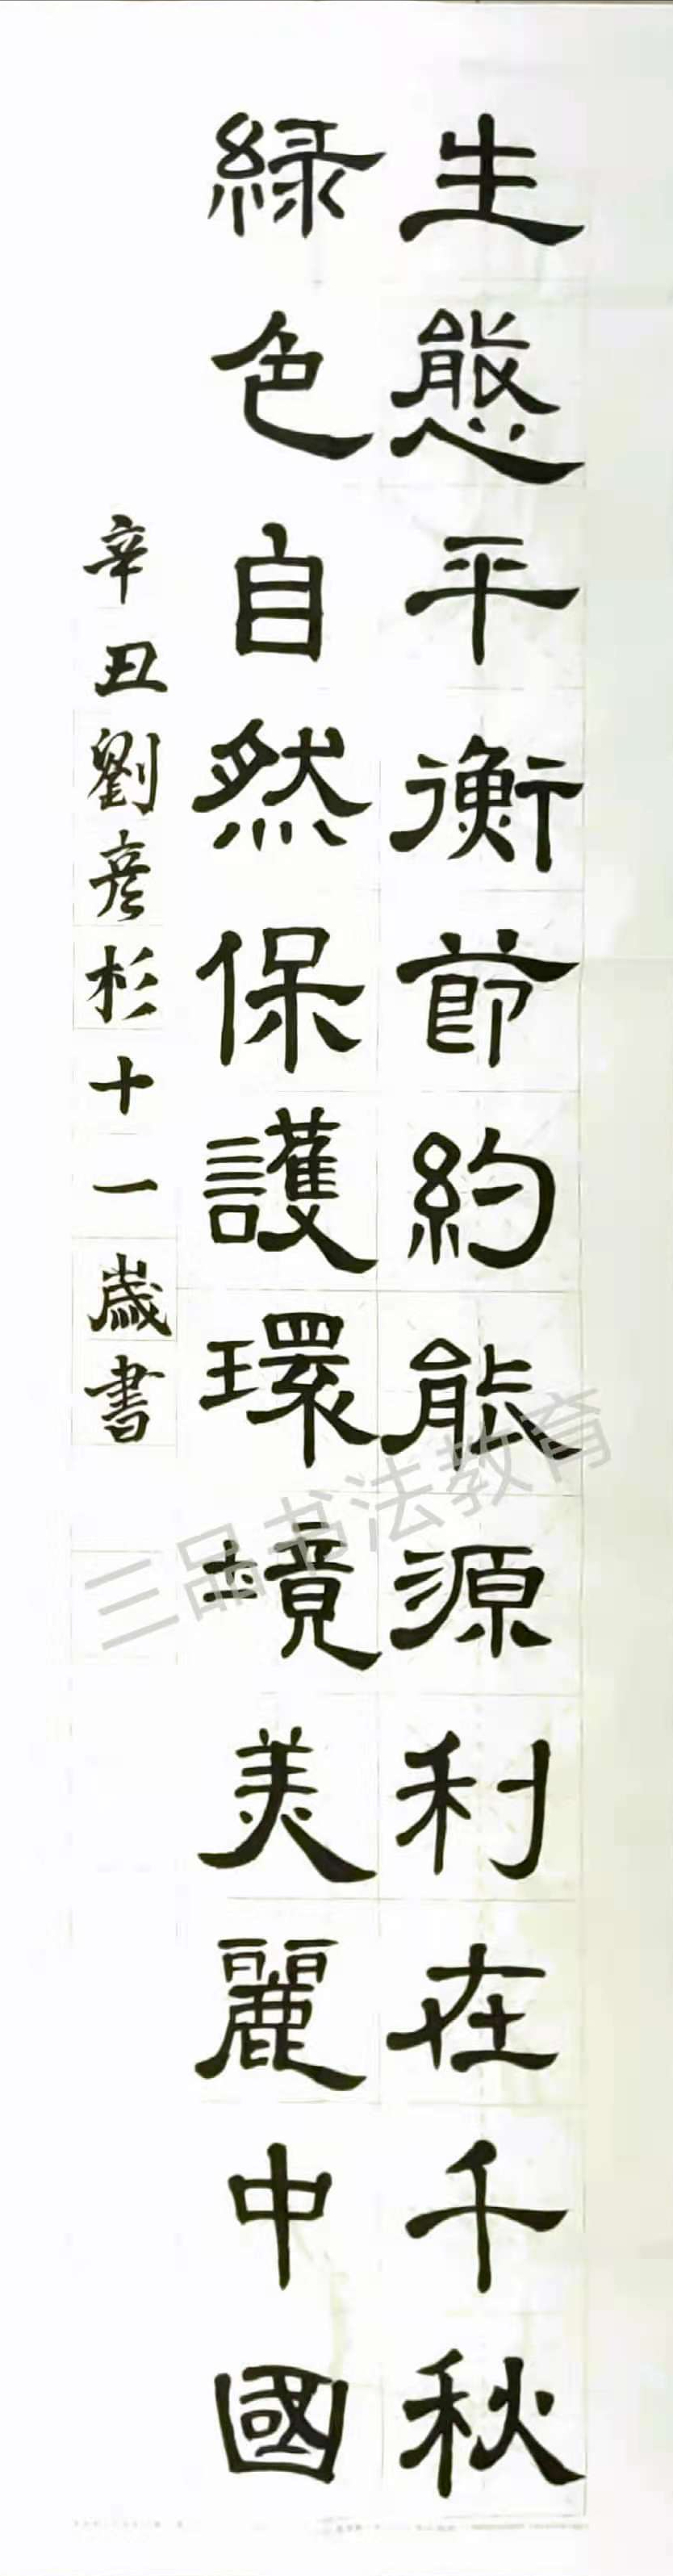 生態平衡節約能源利在千秋
綠色自然保護環境美麗中國
辛丑劉彦杉十一歲書
三品书法教育